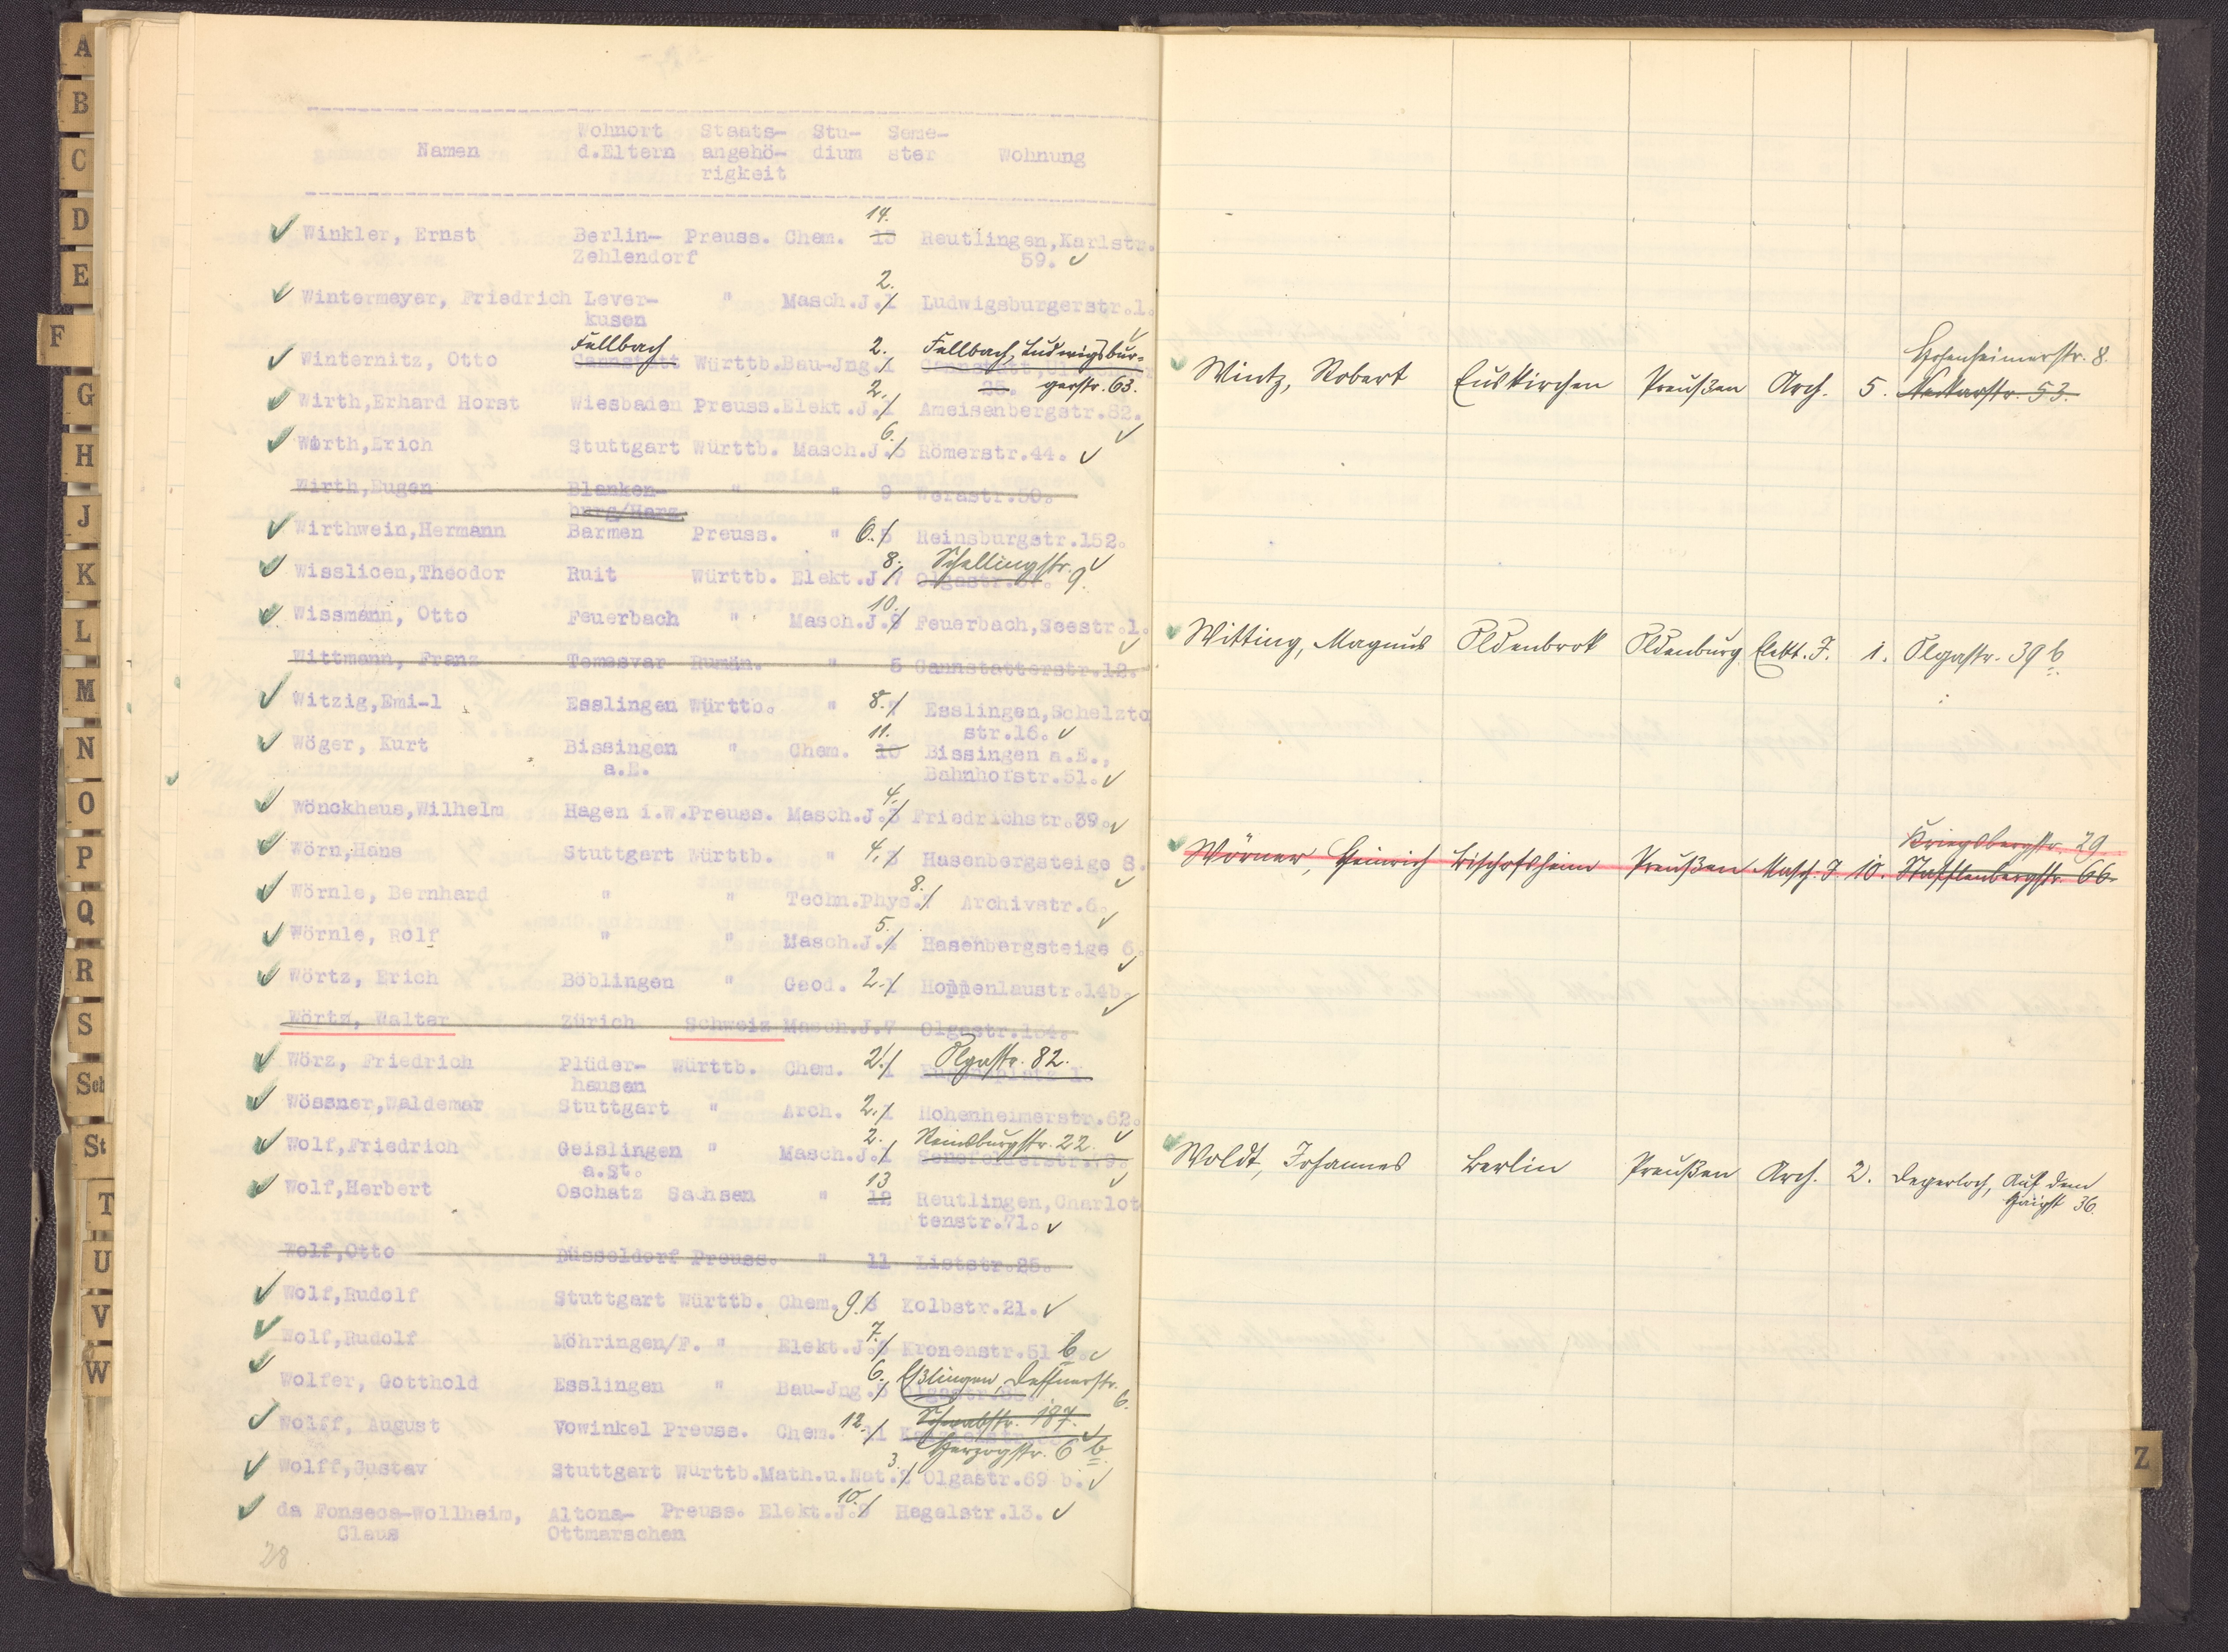 A
B
C
D
E
F
G
H
J
K
L
M
N
O
P
Q
R
S
Sch
St
T
U
V
W
Namen Wohnort d.Eltern Staats-angehö-rigkeit Stu-dium Seme-ster Wohnung
14.
Winkler, Ernst Berlin- Preuss. Chem. 13 Reutlingen,Karlstr.
Zehlendorf 59.
2.
Wintermeyer, Friedrich Lever- " Masch.J.1 Ludwigsburgerstr.1.
kusen
Fellbach 2. Fellbach, Ludwigsbur-
Winternitz, Otto Cannstatt Württb.Bau-Jng.1 Cannstatt,
2. 25. gerstr. 63.
Wirth,Erhard Horst Wiesbaden Preuss.Elekt.J.1 Ameisenbergstr.82.
6.
Wirth,Erich Stuttgart Württb. Masch.J.5 Römerstr.44.
Wirth,Eugen Blanken- " " 9 Werastr.50.
burg/Harz
Wirthwein,Hermann Barmen Preuss. " 6. 5 Reinsburgstr.152.
8. Schellingstr. 9.
Wisslicen,Theodor Ruit Württb. Elekt.J.7 Olgastr.
10.
Wissmann, Otto Feuerbach " Masch.J.9 Feuerbach,Seestr.1.
Wittmann, Franz Temesvar Rumän. " 5 Cannstatterstr.12.
Witzig,Emi-l Esslingen Württb. " 8. 7 Esslingen,Schelzto
11. str.16.
Wöger, Kurt Bissingen " Chem. 10 Bissingen a.E.,
a.E. Bahnhofstr.51.
4.
Wönckhaus,Wilhelm Hagen i.W.Preuss. Masch.J.3 Friedrichstr.39.
Wörn,Hans Stuttgart Württb. " 4. 3 Hasenbergsteige 8.
8.
Wörnle, Bernhard " " Techn.Phys.7 Archivstr.6.
5.
Wörnle, Rolf " " Masch.J.4 Hasenbergsteige 6.
Wörtz, Erich Böblingen " Geod. 2. 1 Hoppenlaustr.14b.
Wörtz, Walter Zürich Schweiz Masch.J.7 Olgastr.
Olgastr. 82.
Wörz, Friedrich Plüder- Württb. Chem. 2. 1
hausen
Wössner,Waldemar Stuttgart " Arch. 2. 1 Hohenheimerstr.62.
2. Reinsburgstr. 22.
Wolf,Friedrich Geislingen " Masch.J.1 Senefelderstr.79.
a.St. 13
Wolf,Herbert Oschatz Sachsen " 12 Reutlingen,Charlot
tenstr.71.
Wolf,Otto Düsseldorf Preuss. " 11 Liststr.25.
Wolf,Rudolf Stuttgart Württb. Chem. 9. 8 Kolbstr.21.
7.
Wolf,Rudolf Möhringen/F. " Elekt.J.6 Kronenstr.51 b.
6. Eßlingen, Deffnerstr. 6.
Wolfer, Gotthold Esslingen " Bau-Jng.5 Olgastr.
Schwabstr. 187.
Wolff, August Vowinkel Preuss. Chem. 12. 11
3. Herzogstr. 6 b.
Wolff,Gustav Stuttgart Württb.Math.u.Nat.2 Olgastr.69 b.
10.
da Fonseca-Wollheim, Altona- Preuss. Elekt.J.9 Hegelstr.13.
Claus Ottmarschen
28
Hohenheimerstr. 8.
Wintz, Robert Euskirchen Preußen Arch. 5. Neckarstr. 53.
Witting, Magnus Oldenbrok Oldenburg Elekt. J. 1. Olgastr. 39 b
Kriegsbergstr. 29
Wörner, Heinrich Bischofsheim Preußen Masch. J. 10. Stafflenbergstr. 66.
Woldt, Johannes Berlin Preußen Arch. 2. Degerloch, Auf dem
Haigst 36.
Z